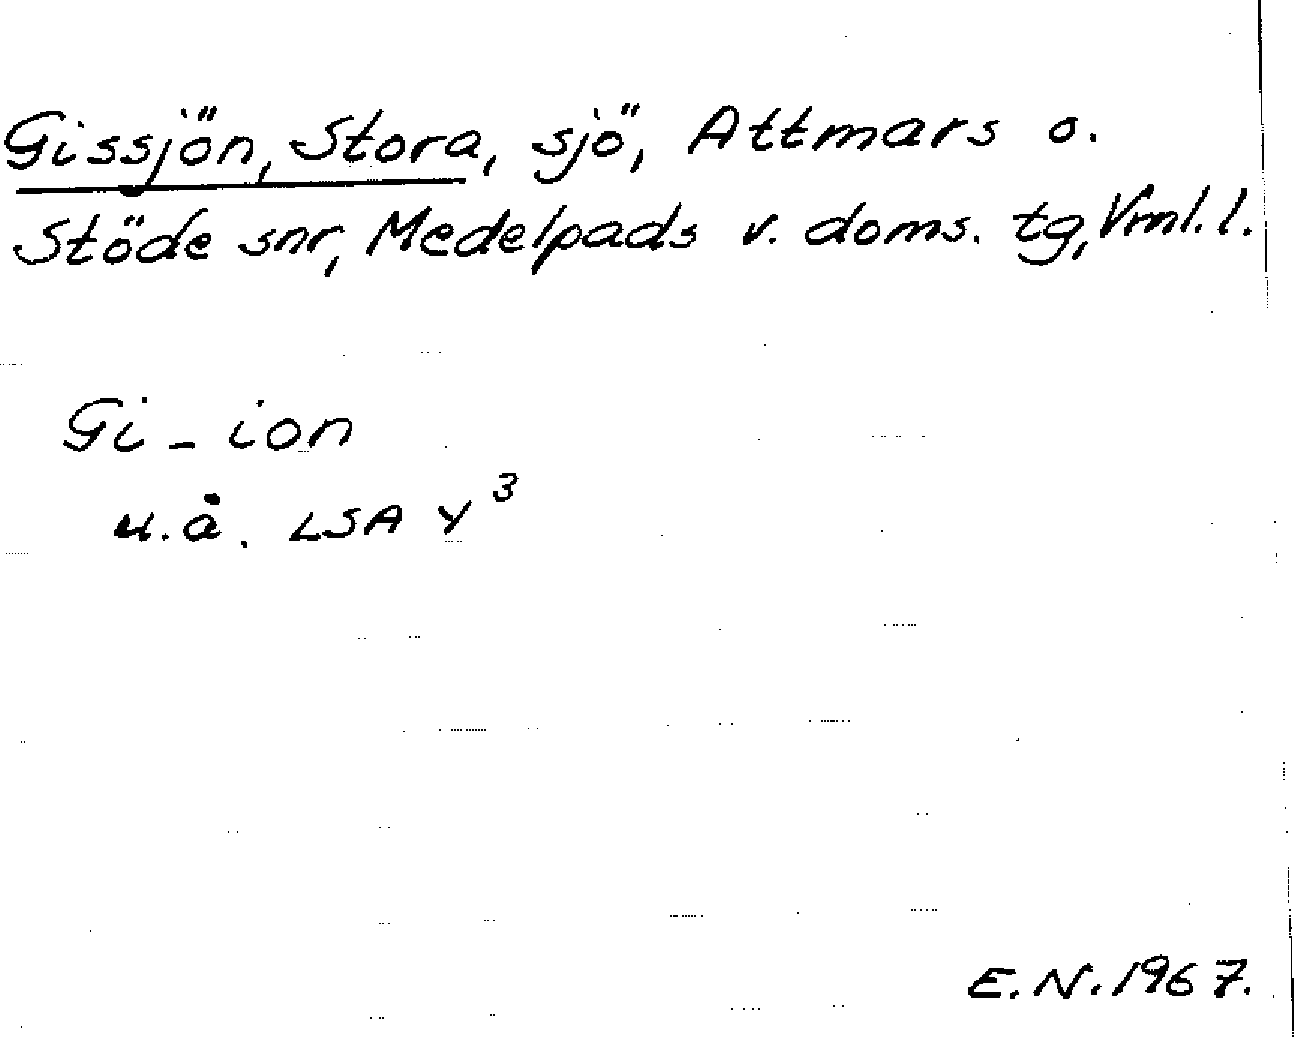 Gissjön, Stora, sjö, Attmars o.
Stöde snr, Medelpads v. doms. tg, Vml. l.
Gi - ion
u.å. LSA Y³
E.N. 1967.